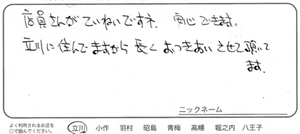 店員さんがていねいですネ 安心できます。
立川に住んでますから長くおつきあいさせて頂いて
ます。
ニックネーム
よく利用されるお店を
○で囲んでください。
立川 小作 羽村 昭島 青梅 高幡 堀之内 八王子